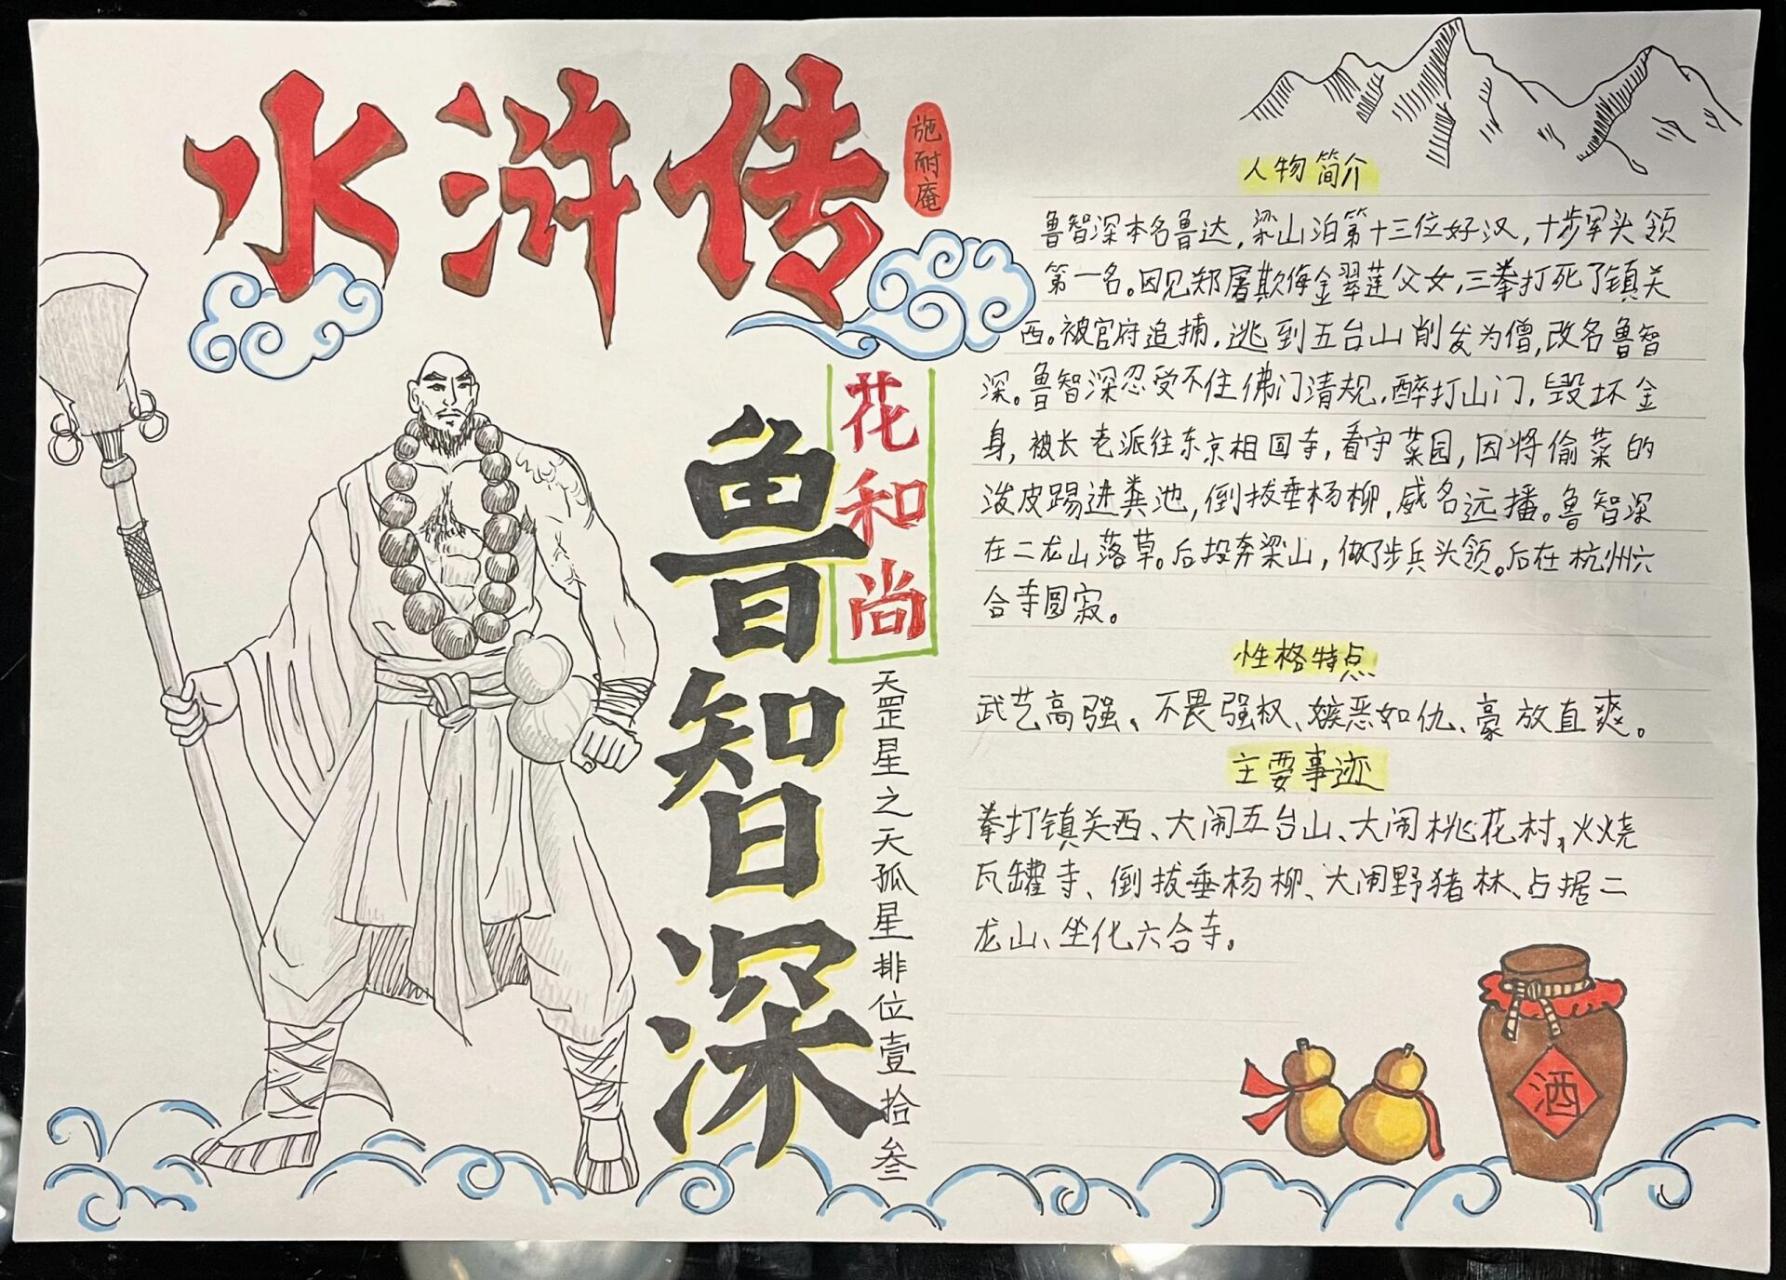 水浒传
施耐庵
花和尚
鲁智深
天罡星之天孤星排位壹拾叁
人物简介
鲁智深本名鲁达，梁山泊第十三位好汉，十步军头领
第一名。因见郑屠欺侮金翠莲父女，三拳打死了镇关
西。被官府追捕，逃到五台山削发为僧，改名鲁智
深。鲁智深忍受不住佛门清规，醉打山门，毁坏金
身，被长老派往东京相国寺，看守菜园，因将偷菜的
泼皮踢进粪池，倒拔垂杨柳，威名远播。鲁智深
在二龙山落草。后投奔梁山，做了步兵头领。后在杭州六
合寺圆寂。
性格特点
武艺高强、不畏强权、嫉恶如仇、豪放直爽。
主要事迹
拳打镇关西、大闹五台山、大闹桃花村，火烧
瓦罐寺、倒拔垂杨柳、大闹野猪林、占据二
龙山、坐化六合寺。
酒